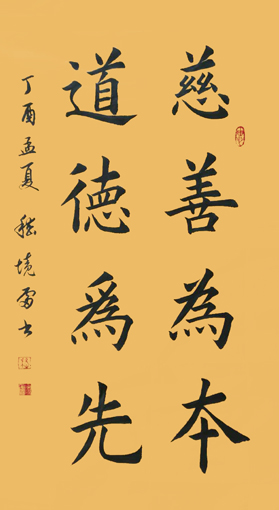 慈善為本
道德為先
丁酉孟夏 境雷书